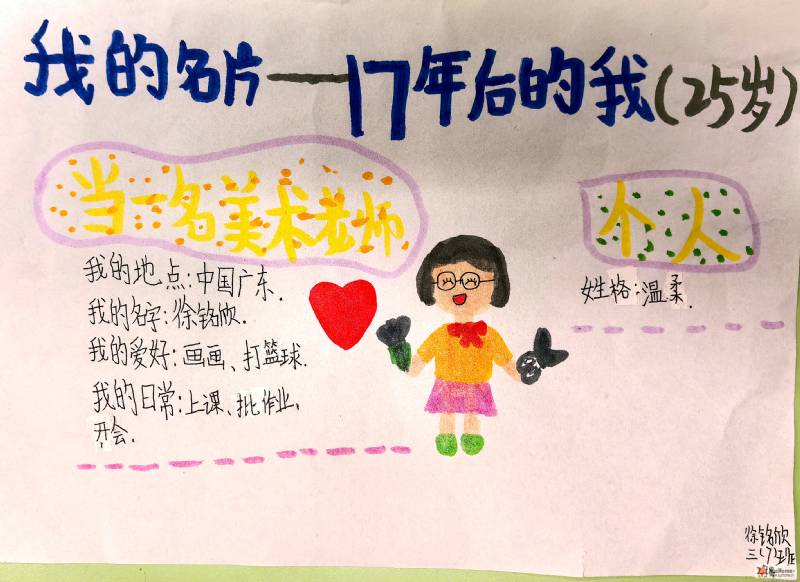 我的名片—17年后的我(25岁)
当一名美术老师
我的地点:中国广东.
我的名字:徐铭欣.
我的爱好:画画、打篮球.
我的日常:上课、批作业,
开会.
个人
姓格:温柔.
徐铭欣
三(7)班